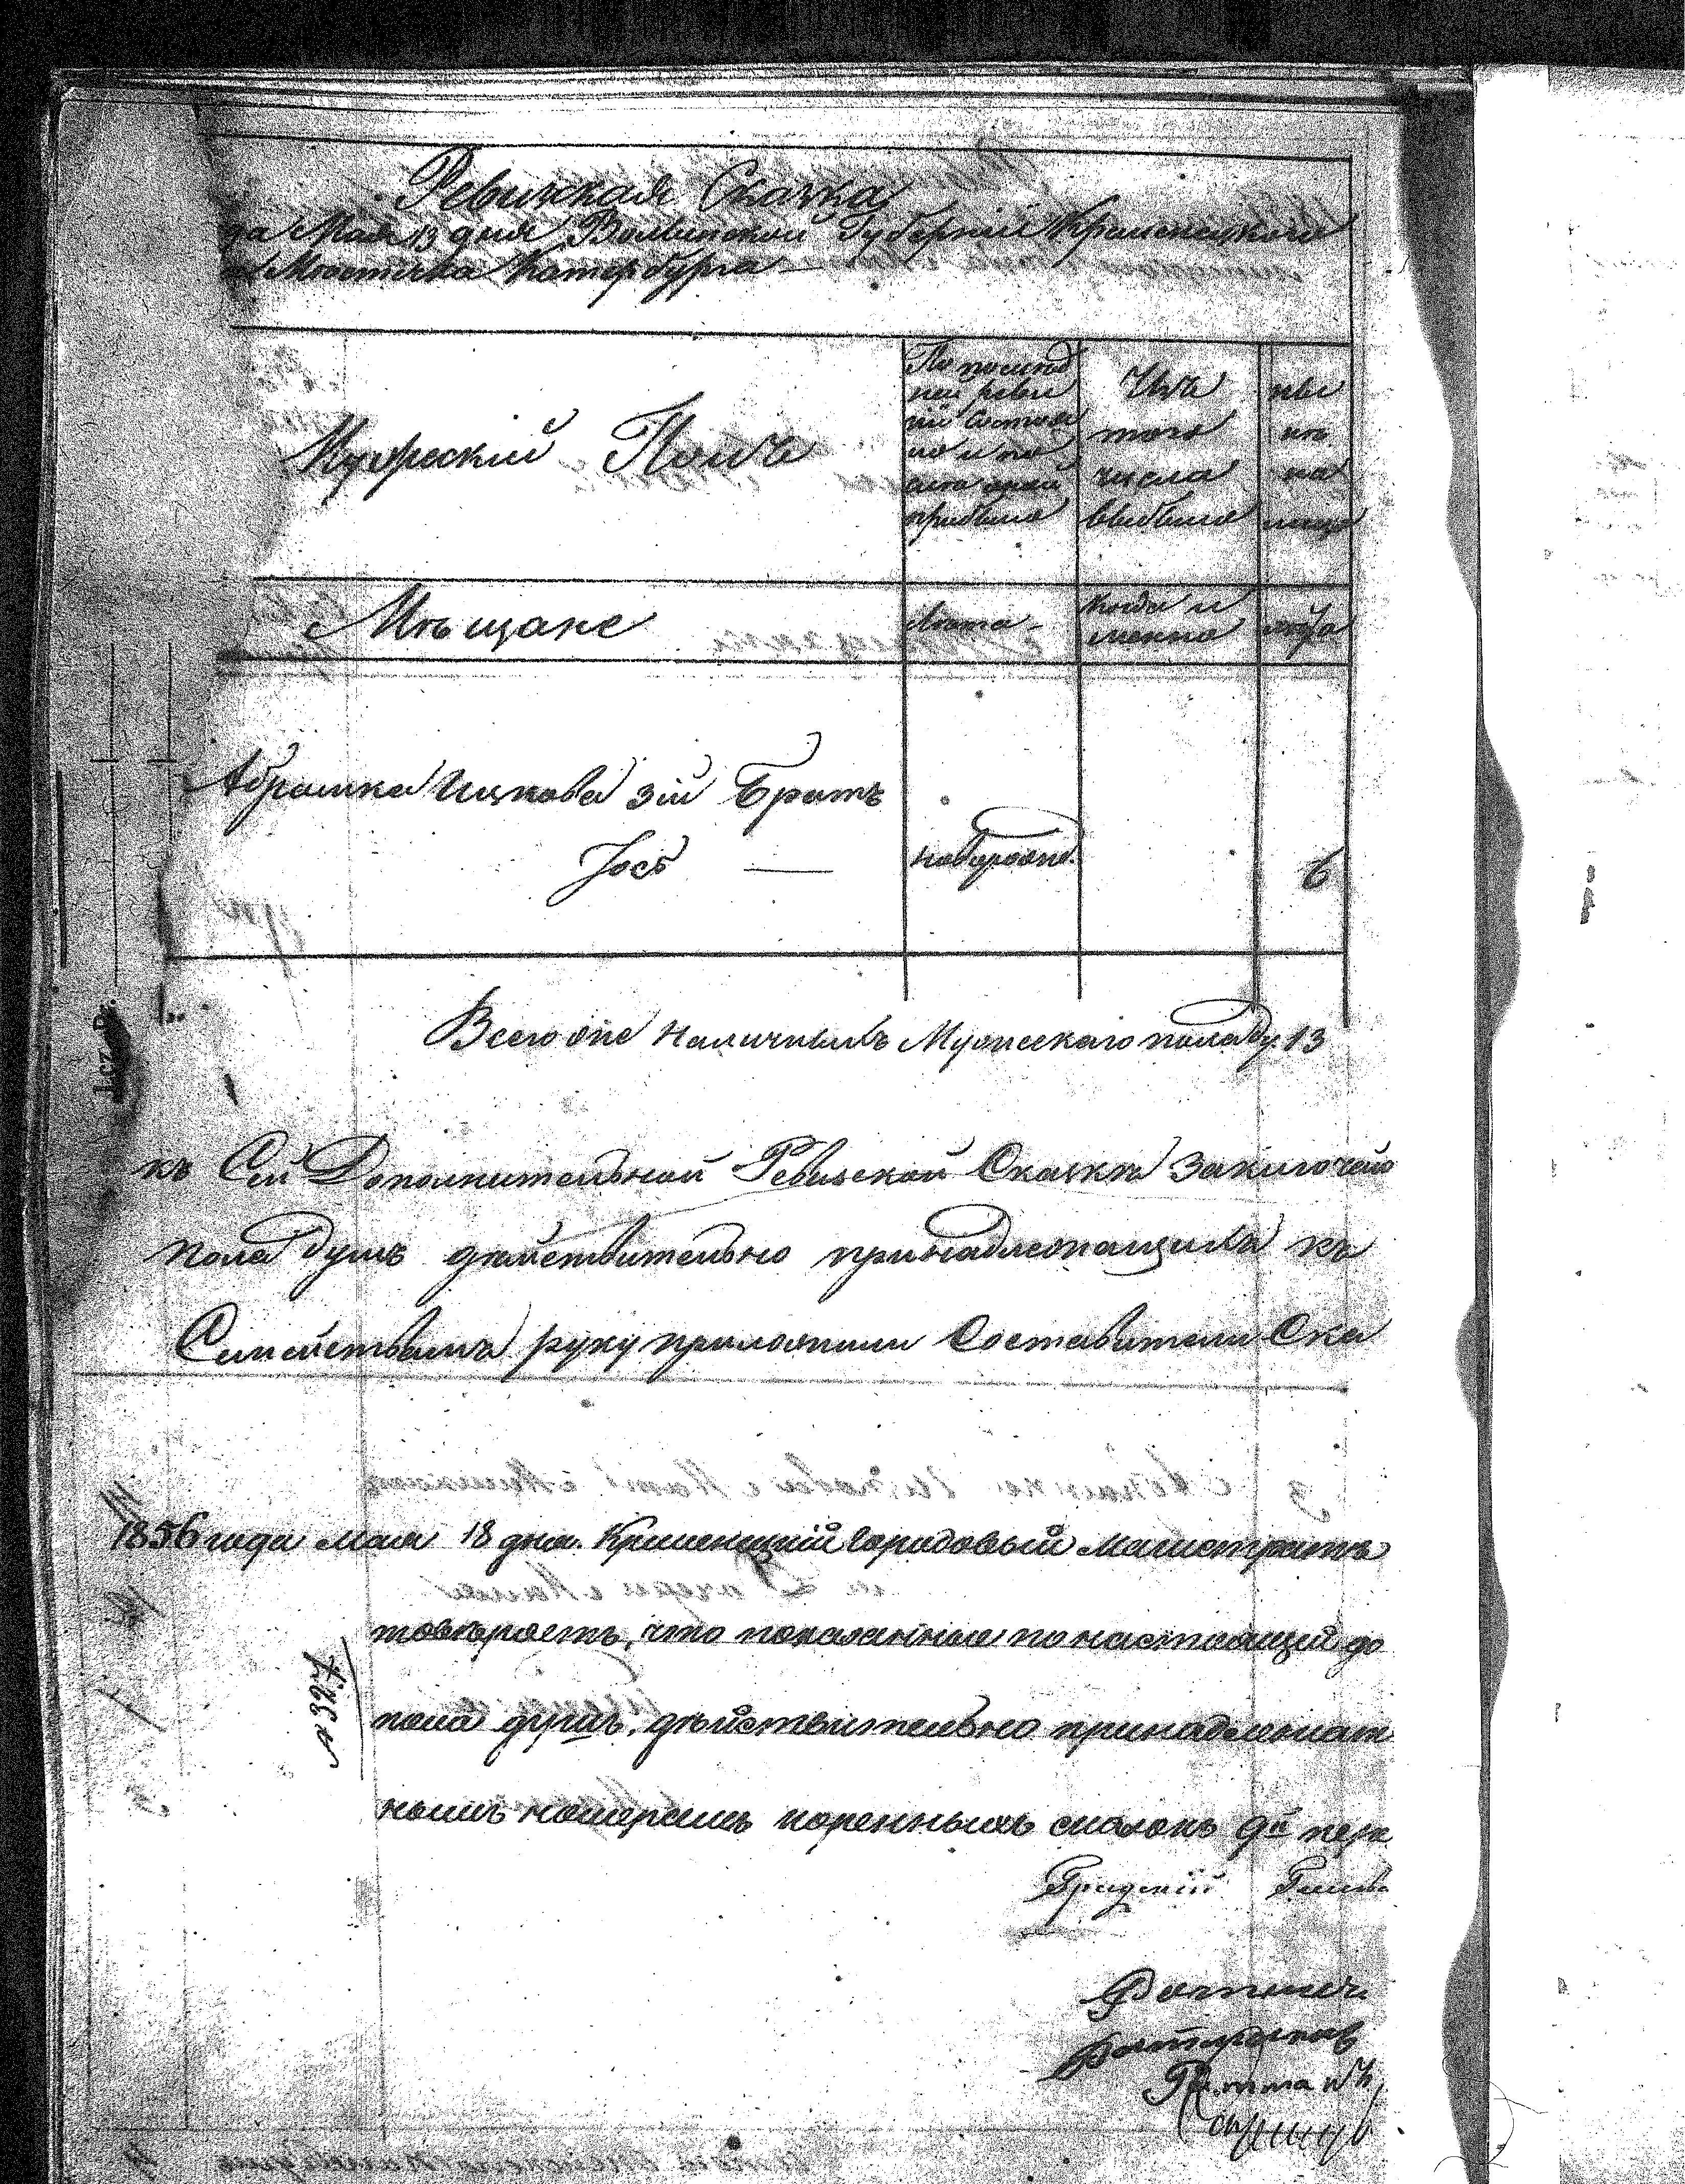 Ревижская Сказка
да Мая 13 дня Волынской Губерніи Кременецкаго
Местечка Катербурга
Мужескій Полъ
По послед
ней реви
зіи состоя
ло и по
слѣ оной
прибыло
Изъ
того
числа
выбыло
ны
нѣ
на
лицо
Мѣщане
Лѣта
Когда и
менно
лѣта
Абрамка Ицкова 3ій Братъ
Іось —
новорожд.
6
Всего оне Наличныхъ Мужескаго пола ду. 13
къ Сей Дополнительной Ревизской Сказкѣ Заключаю
пола душъ дѣйствительно принадлежащихъ къ
Семействамъ руку приложили Составители Ска
1856 года мая 18 дня. Кременецкій городовый магистратъ
товѣряетъ, что показанные по настоящей до
№ 327
пола душъ, дѣйствительно принадлежат
нымъ номерамъ коренныхъ сказокъ 9й пере
Градскій Глава
Ратманъ